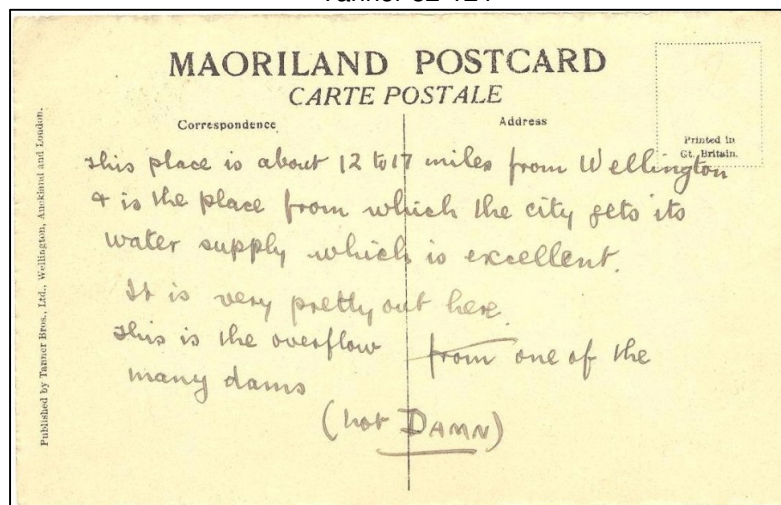 MAORILAND POSTCARD
CARTE POSTALE
Correspondence
Address
Printed in
Gt. Britain.
Published by Tanner Bros., Ltd., Wellington, Auckland and London.
This place is about 12 to 17 miles from Wellington
& is the place from which the city gets its
water supply which is excellent.
It is very pretty out here.
This is the overflow from one of the
many dams
(not DAMN)